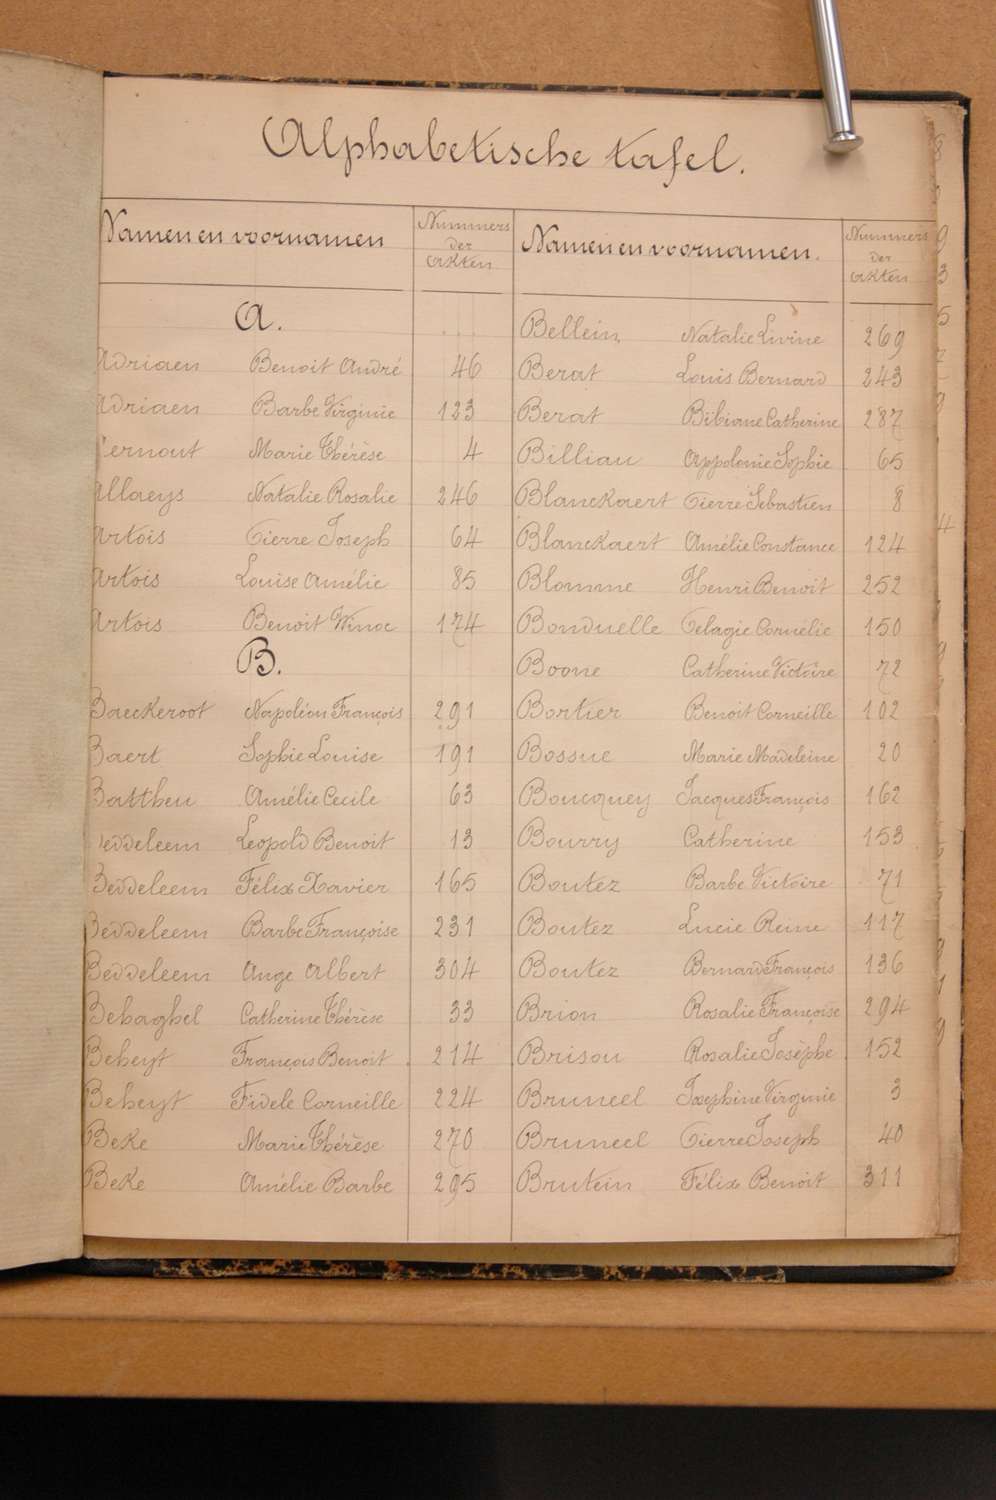 Alphabetische tafel.
Namen en voornamen
Nummers
der
akten
Namen en voornamen.
Nummers
der
akten
A.
Adriaen Benoit André 46
Adriaen Barbe Virginie 123
Cernout Marie Thérèse 4
Allaeys Natalie Rosalie 246
Artois Pierre Joseph 64
Artois Louise Amélie 85
Artois Benoit Winoc 174
B.
Baeckeroot Napoléon François 291
Baert Sophie Louise 191
Battheu Amélie Cecile 63
Beddeleem Leopold Benoit 13
Beddeleem Félix Xavier 165
Beddeleem Barbe Françoise 231
Beddeleem Ange Albert 304
Behaghel Catherine Thérèse 33
Beheyt François Benoit 214
Beheyt Fidele Corneille 224
Beke Marie Thérèse 270
Beke Amélie Barbe 295
Bellein Natalie Livine 269
Berat Louis Bernard 243
Berat Bibiane Catherine 287
Billiau Appolonie Sophie 65
Blanckaert Pierre Sébastien 8
Blanckaert Amélie Constance 124
Blomme Henri Benoit 252
Bonduelle Pelagie Cornélie 150
Boone Catherine Victoire 72
Bortier Benoit Corneille 102
Bossuc Marie Madeleine 20
Boucquey Jacques François 162
Bourry Catherine 153
Boutez Barbe Victoire 71
Boutez Lucie Reine 117
Boutez Bernard François 136
Brion Rosalie Françoise 294
Brisou Rosalie Josèphe 152
Bruneel Josephine Virginie 3
Bruneel Pierre Joseph 40
Brutein Félix Benoit 311